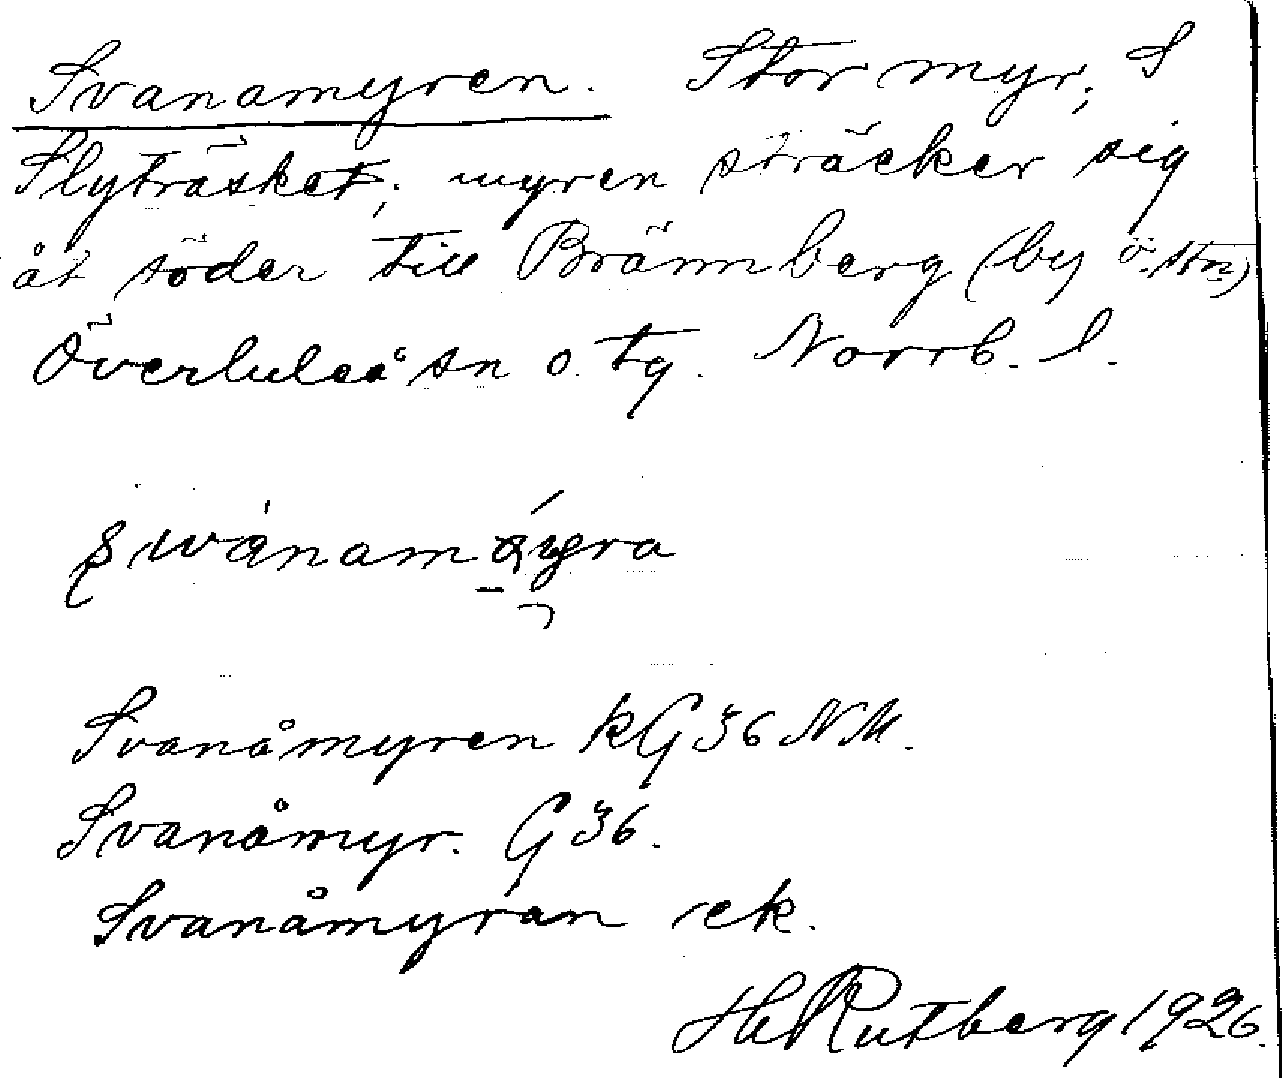 Svanamyren. Stor myr, S
Slyträsket; myren sträcker sig
åt söder till Brännberg (by ö. stn)
Överluleå sn o. tg. Norrb. l.
Svanåmyren kG36 NM.
Svanåmyr. G36.
Svanåmyran ek.
H Rutberg 1926.